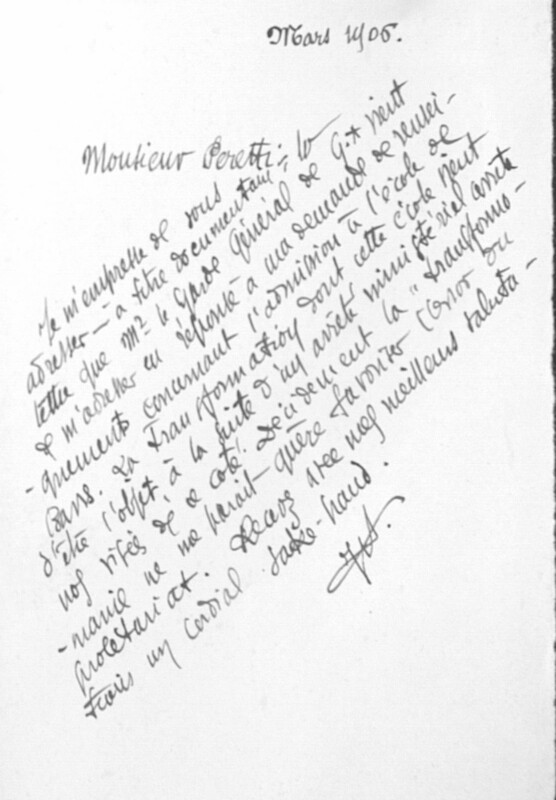 Mars 1906.
Monsieur Peretti,
Je m'empresse de vous
adresser — à titre documentaire, la
lettre que Mr le Garde Général de G.* vient
de m'adresser en réponse à ma demande de rensei-
-gnements concernant l'admission à l'école de
Barres. La transformation dont cette école vient
d'être l'objet à la suite d'un arrêté ministériel arrête
nos visées de ce côté! Décidément la "transformo-
-manie ne me paraît guère favoriser l'essor du
prolétariat. Recevez avec mes meilleurs saluta-
un cordial shake-hand.